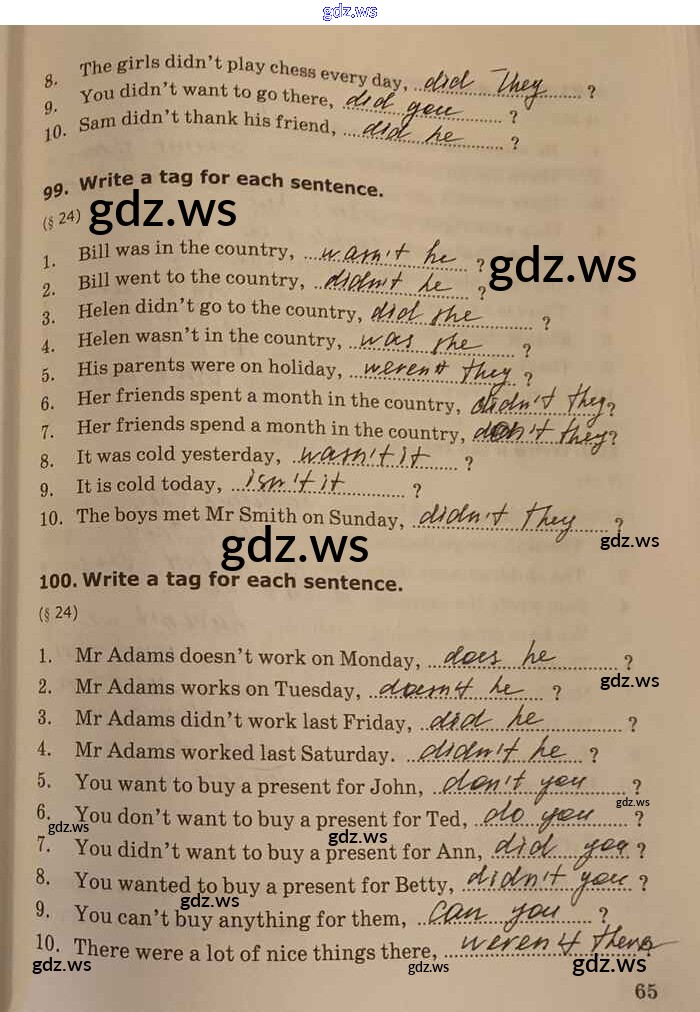 gdz.ws
8. The girls didn't play chess every day, did They ?
9. You didn't want to go there, did you ?
10. Sam didn't thank his friend, did he ?
99. Write a tag for each sentence.
(§ 24)
gdz.ws
1. Bill was in the country, wasn't he ?
gdz.ws
2. Bill went to the country, didn't he ?
3. Helen didn't go to the country, did she ?
4. Helen wasn't in the country, was she ?
5. His parents were on holiday, weren't they ?
6. Her friends spent a month in the country, didn't they ?
7. Her friends spend a month in the country, don't they ?
8. It was cold yesterday, wasn't it ?
9. It is cold today, isn't it ?
10. The boys met Mr Smith on Sunday, didn't they ?
gdz.ws
gdz.ws
100. Write a tag for each sentence.
(§ 24)
1. Mr Adams doesn't work on Monday, does he ?
2. Mr Adams works on Tuesday, doesn't he ?
gdz.ws
3. Mr Adams didn't work last Friday, did he ?
4. Mr Adams worked last Saturday. didn't he ?
5. You want to buy a present for John, don't you ?
gdz.ws
6. You don't want to buy a present for Ted, do you ?
gdz.ws
gdz.ws
7. You didn't want to buy a present for Ann, did you ?
8. You wanted to buy a present for Betty, didn't you ?
gdz.ws
9. You can't buy anything for them, can you ?
10. There were a lot of nice things there, weren't there ?
gdz.ws
gdz.ws
gdz.ws
65